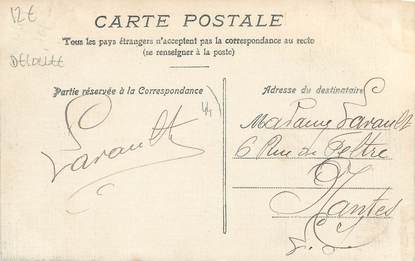 12€
CARTE POSTALE
Tous les pays étrangers n'acceptent pas la correspondance au recto
(se renseigner à la poste)
Partie réservée à la Correspondance
Adresse du destinataire
Lavault
Madame Lavault
6 Rue du Peltre
Nantes